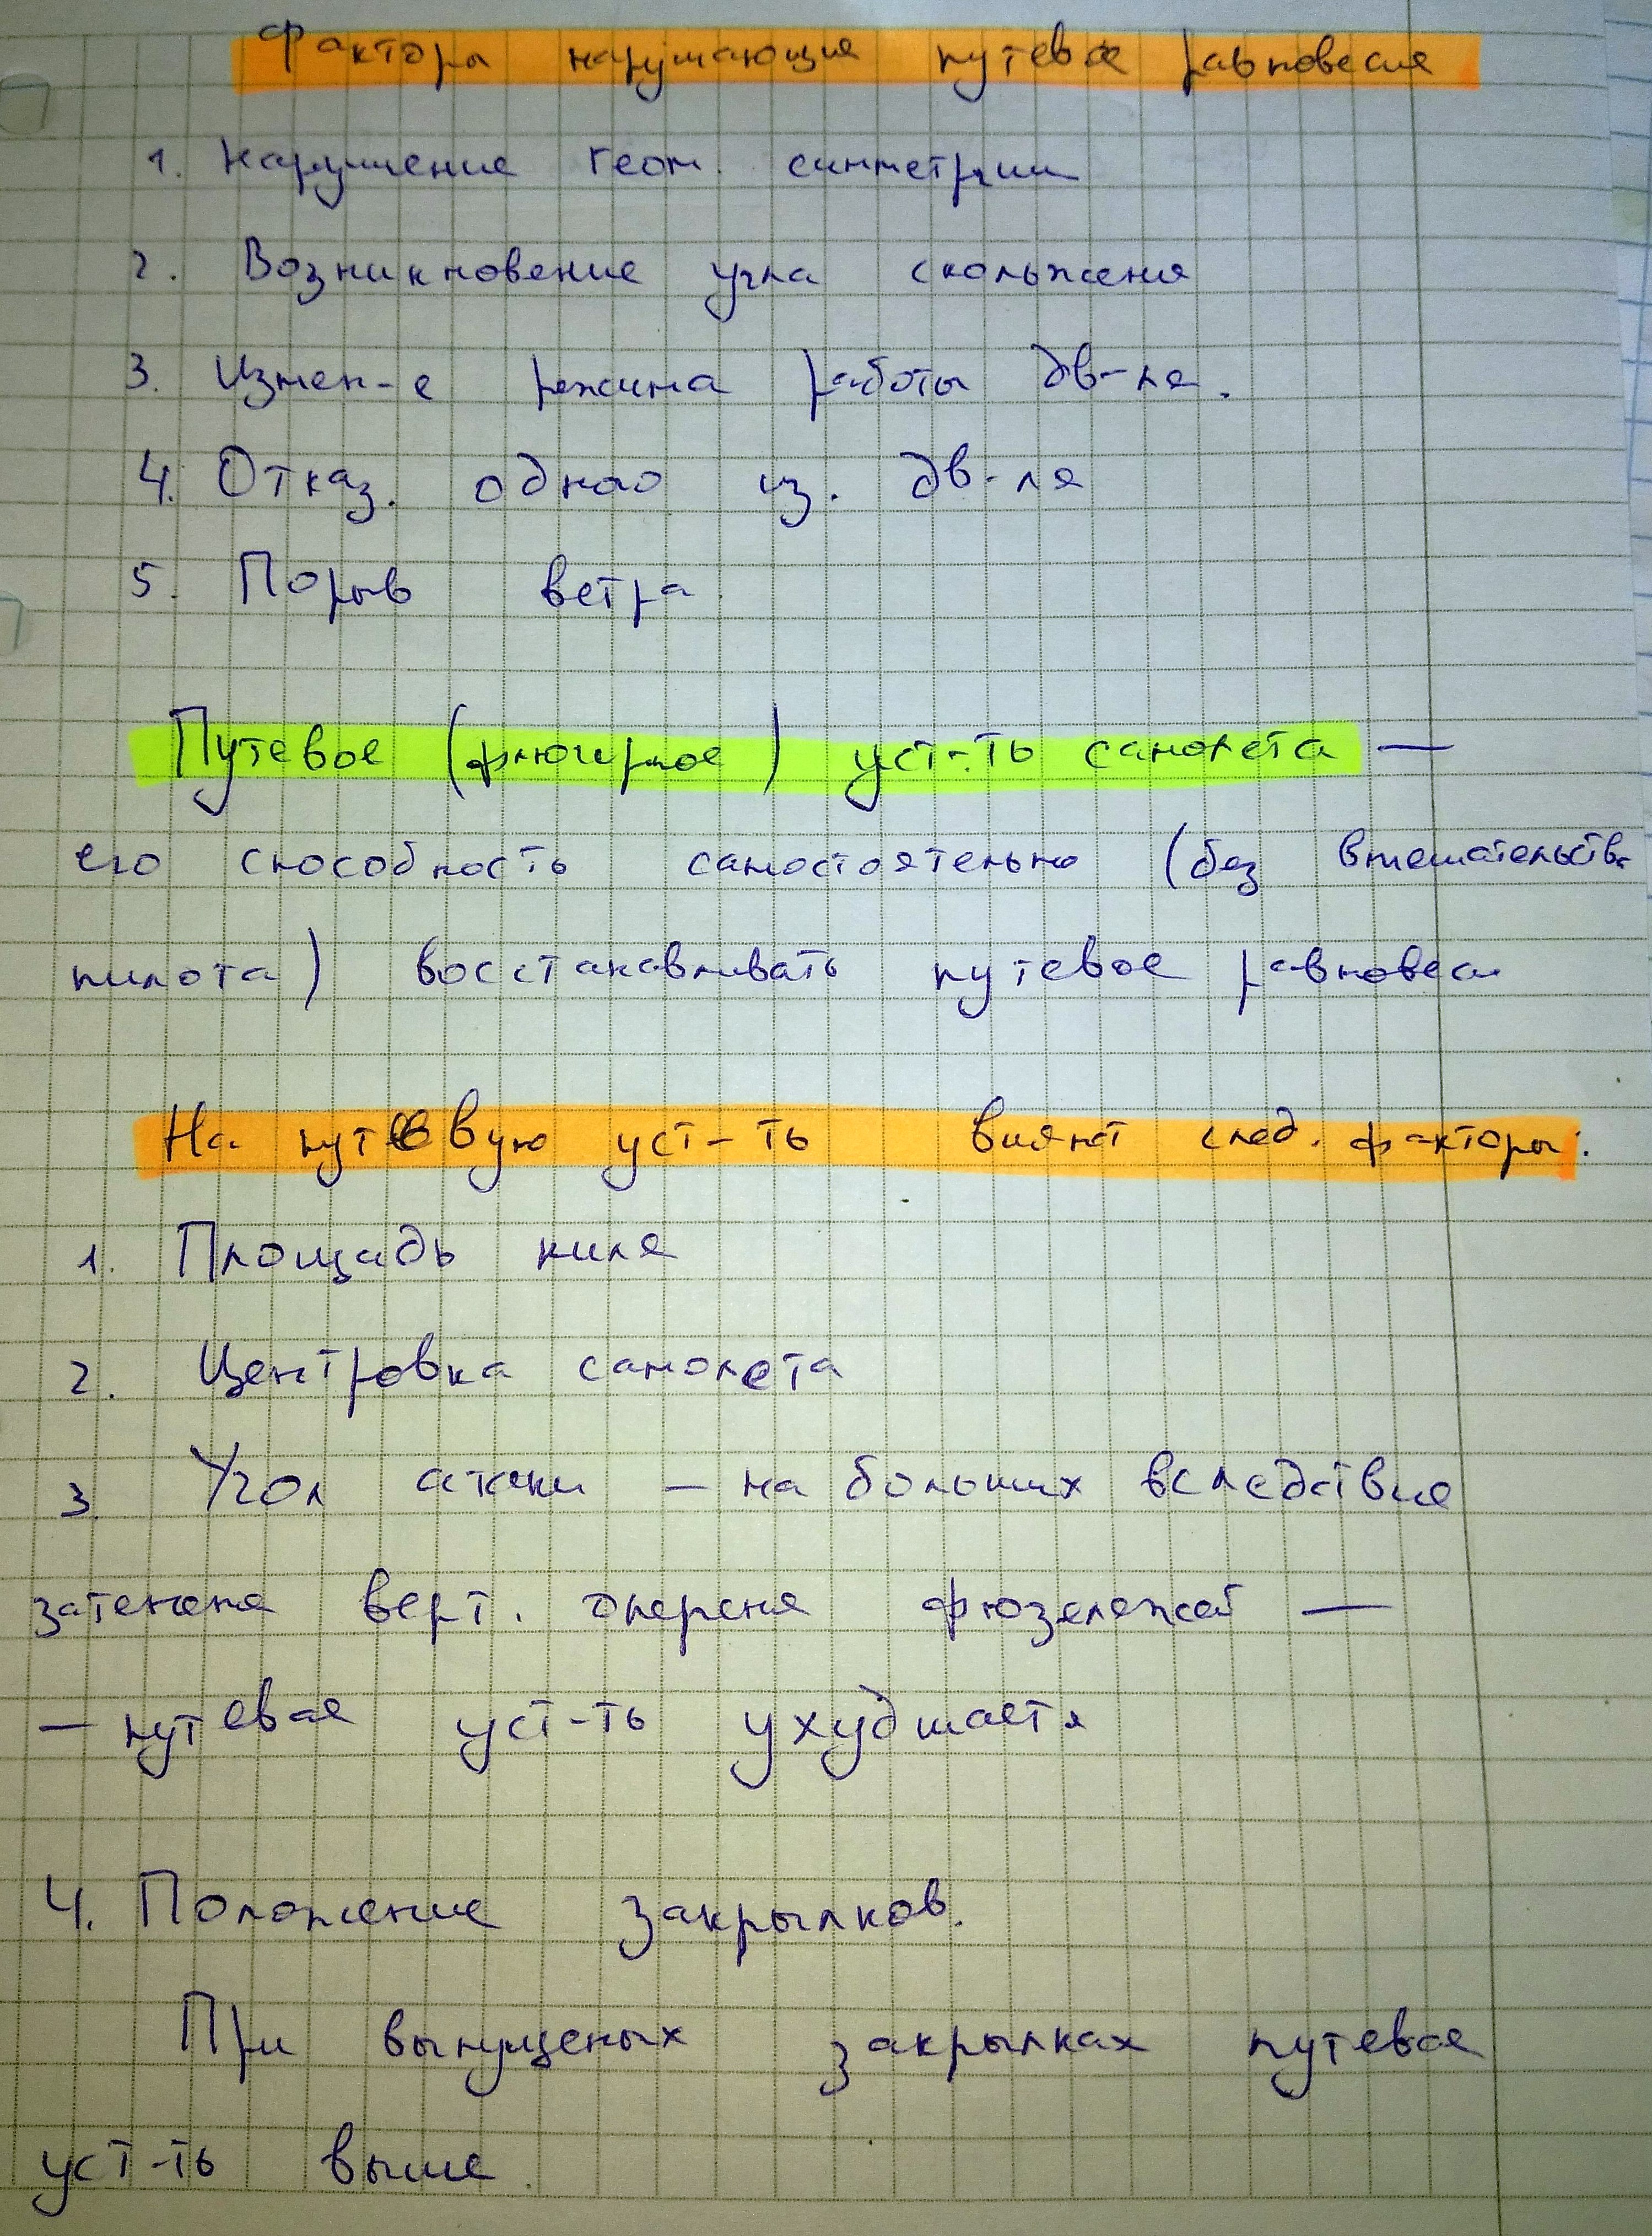 Факторы нарушающие путевое равновесия
1. Нарушение геом. симметрии
2. Возникновение угла скольжения
3. Измен-е режима работы дв-ля.
4. Отказ. одного из. дв-ля
5. Порыв ветра
Путевое (флюгерное) уст-ть самолета —
его способность самостоятельно (без вмешательства
пилота) восстанавливать путевое равновеси
На путевую уст-ть влияют след. факторы:
1. Площадь киля
2. Центровка самолета
3. Угол атаки — на больших вследствие
затенения верт. оперения фюзеляжей —
— путевая уст-ть ухудшается
4. Положение закрылков.
При выпущеных закрылках путевая
уст-ть выше.